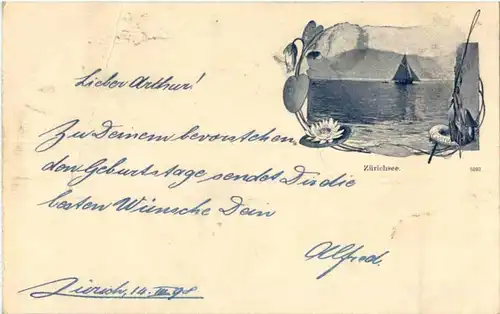 Lieber Arthur!
Zu Deinem bevorstehen
den Geburtstage sendet Dir die
besten Wünsche Dein
Alfred.
Zürich, 14. III. 98
Zürichsee.